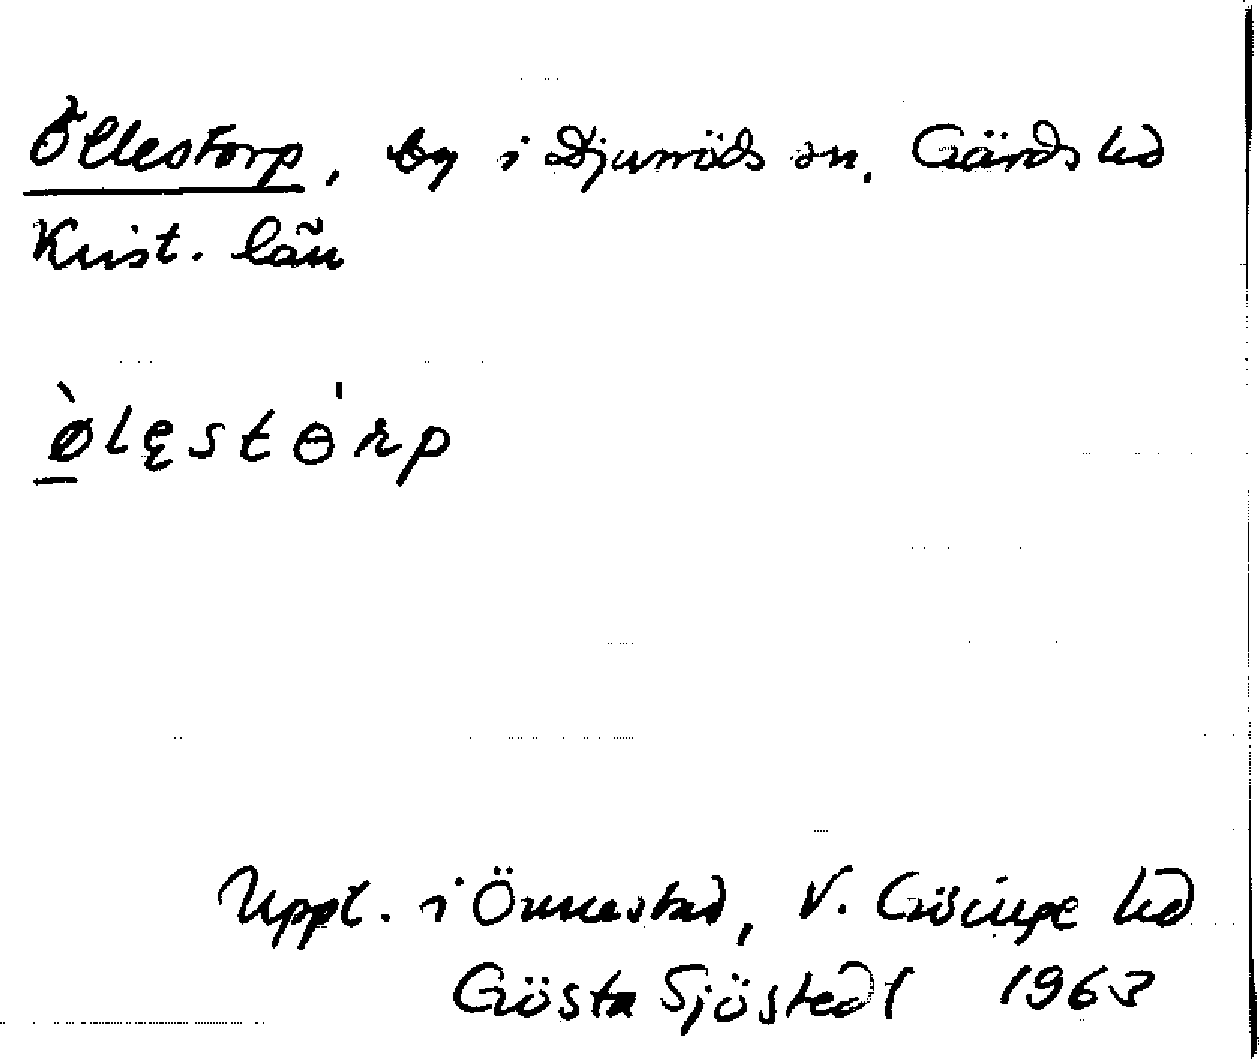 Öllestorp, by i Djurröds sn, Gärds hd
Krist. län
ø̀lęstɵ́rp
Uppt. i Önnestad, V. Göinge hd
Gösta Sjöstedt 1963